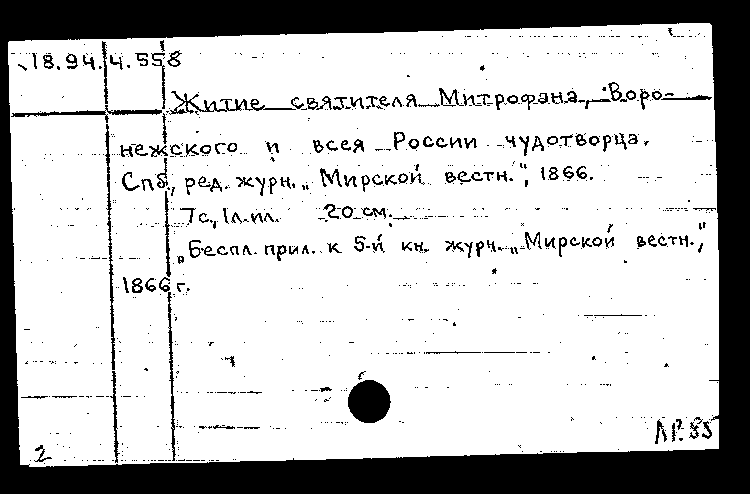 18.94.4.558
Житие святителя Митрофана, Воро-
нежского и всея России чудотворца.
Спб., ред. журн. „Мирской вестн.", 1866.
7с., 1л.ил. 20 см.
„Беспл. прил. к 5-й кн. журн. „Мирской вестн.",
1866 г.
2